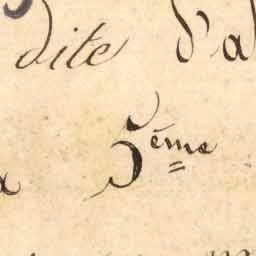 dite d'a
5ème